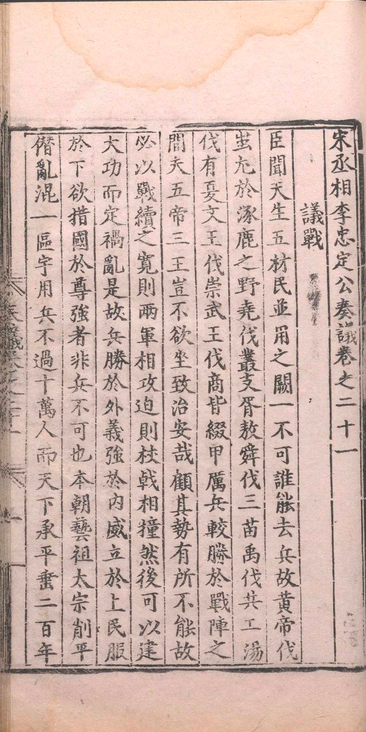 宋丞相李忠定公奏議卷之二十一
議戰
臣聞天生五材民並用之闕一不可誰能去兵故黃帝伐
蚩尤於涿鹿之野堯伐叢支胥敖舜伐三苗禹伐共工湯
伐有夏文王伐崇武王伐商皆綴甲厲兵較勝於戰陣之
間夫五帝三王豈不欲坐致治安哉顧其勢有所不能故
必以戰續之寬則兩軍相攻迫則杖戟相撞然後可以建
大功而定禍亂是故兵勝於外義強於內威立於上民服
於下欲措國於尊強者非兵不可也本朝藝祖太宗削平
僭亂混一區宇用兵不過十萬人而天下承平垂二百年